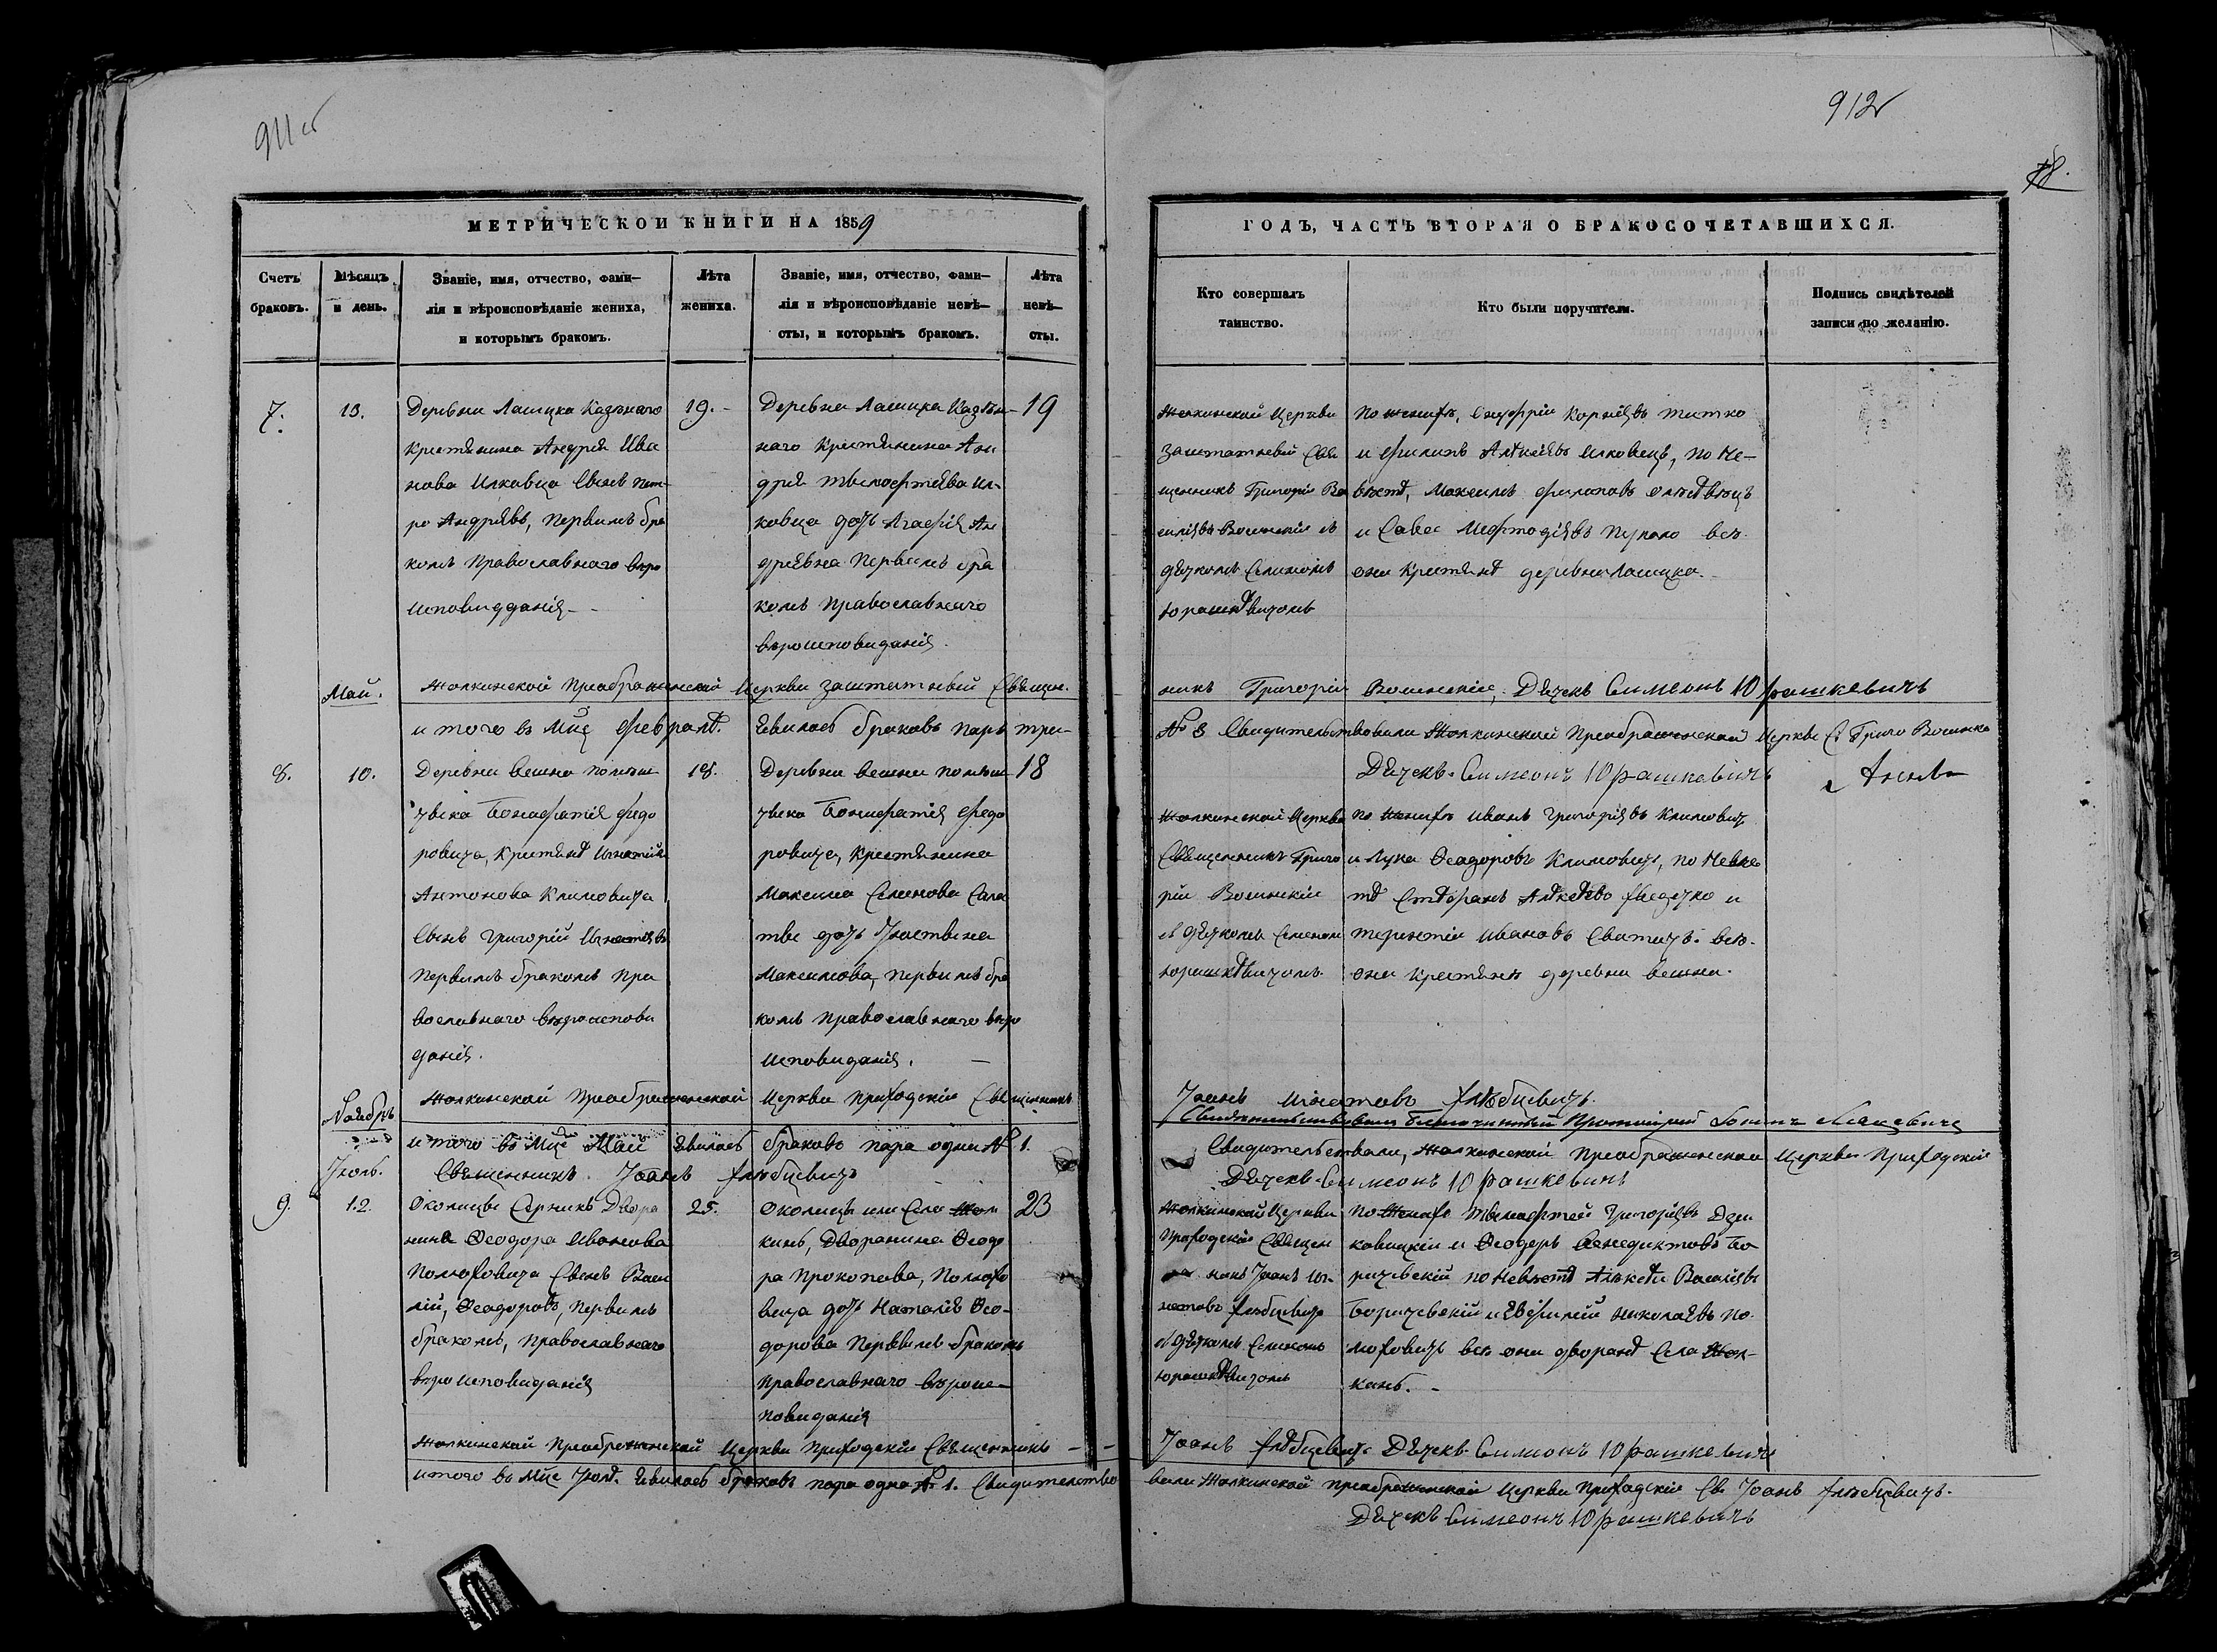 911 об
912
78.
МЕТРИЧЕСКОЙ КНИГИ НА 1859
ГОДЪ, ЧАСТЬ ВТОРАЯ О БРАКОСОЧЕТАВШИХСЯ.
Счетъ
браковъ.
Мѣсяцъ
и день.
Званіе, имя, отчество, фами-
лія и вѣроисповѣданіе жениха,
и которымъ бракомъ.
Лѣта
жениха.
Званіе, имя, отчество, фами-
лія и вѣроисповѣданіе невѣ-
сты, и которымъ бракомъ.
Лѣта
невѣ-
сты.
Кто совершалъ
таинство.
Кто были поручители.
Подпись свидѣтелей
записи по желанію.
7.
13.
Деревни Ламицка Казѣнаго
Крестянина Андрея Ива
нова Илковца Сынъ Пет-
ро Андрѣевъ, первимъ бра
комъ Православнаго вѣро
исповидданія
19.
Деревни Ламицка Казѣн-
наго Крестянина Ан
дрея Ил-
ковца дочь Агафія Ан
дріевна первимъ бра
комъ Православнаго
вѣроисповиданія.
19
Жолкинской Церкви
заштатний Свя
щенникъ Григорій Ва
силіевъ Волинскій съ
дячкомъ Симиономъ
Юрашкевичомъ
По женихѣ, Онуфрій Корніевъ Титко
и Филипъ Илковецъ, по не-
вѣстѣ, Максимъ Филиповъ
и Савва Мефтодіевъ всѣ
они крестяне деревни Ламицка.
Май.
Жолкинской Преображенской Церкви заштатний Священ-
никъ Григорій Волинскій, Дячекъ Симеонъ Юрашкевичъ
итого въ Мцѣ Феврале. Явилось браковъ паръ три
№ 3 Свидительствовали Жолкинской Преображенской Церкви С. Григо Волинск
Дячекъ Симеонъ Юрашкевичъ
8.
10.
Деревни Вешна помѣш
чвека Бонифатія Федо
ровича, Крестяне Игнатія
Антонова Климовича
Сынъ Григорій Игнатіевъ
первимъ бракомъ пра
вославнаго вѣроисповѣ
данія.
18.
Деревни Вешни помѣш
чвека Бонифатія Федо
ровича, крестянина
Максима Семенова
дочь Іюствина
Максимова, первимъ бра
комъ православнаго вѣро
исповиданія.
18
Жолкинской Церкви
Священникъ Григо
рій Волинскій
съ дячкомъ Симеоном
Юрашкевичомъ
По женихѣ Иванъ Григоріевъ Климовичъ
и Лука Феодоровъ Климовичъ, по невѣс
тѣ Стефанъ и
Терентій Ивановъ всѣ
они крестяне деревни Вешни.
Ноябрь
Жолкинской Преображенской Церкви приходскій Священникъ
Іоанъ Игнатовъ Хлѣбцевичъ
Свидѣтельствовалъ Благочинный Протоіерей
итого въ Мцѣ Май явилось браковъ пара одна № 1.
Свидительствовали, Жолкинской Преображенской Церкви Приходскій
Священникъ Іоанъ Хлѣбцевичъ
Дячекъ Симеонъ Юрашкевичъ
Іюль.
9.
12.
Околицы Серникъ Дворя
нина Феодора Иванова
Полюховича Сынъ Васи
лій, Феодоровъ, первимъ
бракомъ, православнаго
вѣроисповиданія
25.
Околицы или Села Жол
кинъ, Дворянина Феодо
ра Прокопова, Полюхо
вича дочь Наталія Фео-
дорова первимъ бракомъ
православнаго вѣроис-
повиданія
23
Жолкинской Церкви
Приходскій Священ
никъ Іоанъ Иг-
натовъ Хлѣбцевичъ
съ дячкомъ Симеономъ
Юрашкевичомъ
По женихѣ Тимофтей Григоріевъ Дзи
ковицкій и Феодоръ Бенедиктовъ Бо
ричевскій по невѣстѣ Алексѣй Василіевъ
Боричевскій и Николаевъ По-
люховичъ всѣ они дворяне Села Жол-
кинъ.
Жолкинской Преображенской Церкви приходскій Священникъ
Іоанъ Хлѣбцевичъ Дячекъ Симионъ Юрашкевичъ
итого въ Мцѣ Іюлѣ. Явилось браковъ пара одна № 1. Свидительство
вали Жолкинской преображенской Церкви приходскій Св. Іоанъ Хлѣбцевичъ.
Дячекъ Симеонъ Юрашкевичъ